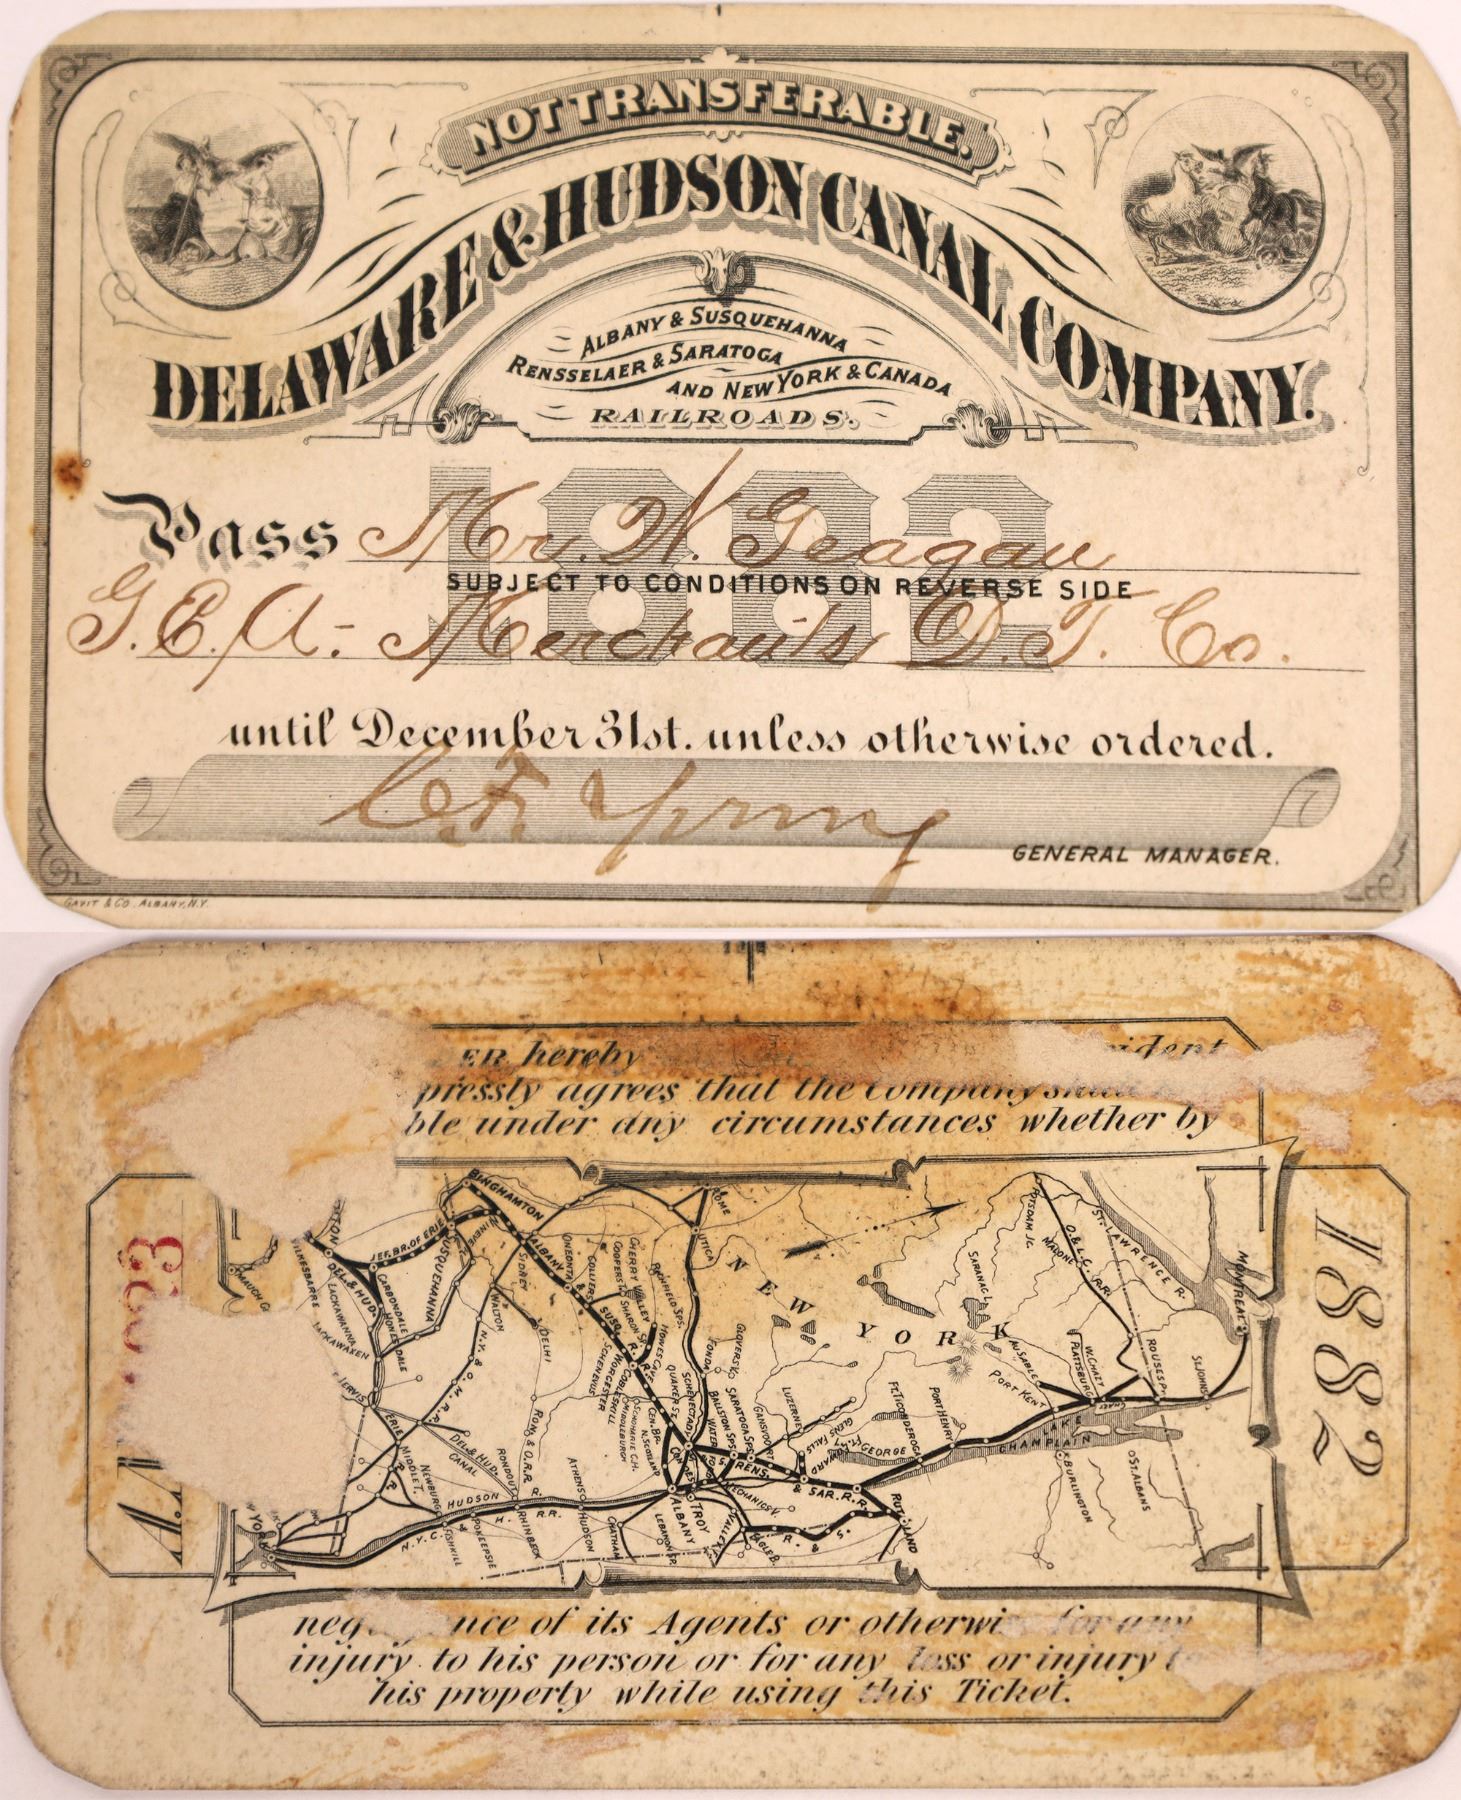 NOT TRANSFERABLE.
DELAWARE & HUDSON CANAL COMPANY.
ALBANY & SUSQUEHANNA
RENSSELAER & SARATOGA
AND NEW YORK & CANADA
RAILROADS.
1882
Pass Mr. N. Geagan
SUBJECT TO CONDITIONS ON REVERSE SIDE
G.E.A.- Merchants D.T. Co.
until December 31st. unless otherwise ordered.
C.F. Young
GENERAL MANAGER.
GAVIT & CO. ALBANY, N.Y.
ER hereby
pressly agrees that the Company
ble under any circumstances whether by
1882
BINGHAMTON
ROME
UTICA
NINEVEH
JEF. BR. OF ERIE
SUSQUEHANNA
DEL. & HUD.
CARBONDALE
HONESDALE
LACKAWANNA
LACKAWAXEN
WILKESBARRE
SIDNEY
WALTON
DELHI
N.Y. & O.M.R.R.
ALBANY & SUSQ. R.R.
ONEONTA
COLLIERS
COOPERST.
CHERRY VALLEY
SHARON SP.
RICHFIELD SPS.
SCHENEVUS
WORCESTER
COBLESKILL
MIDDLEBURGH
SCHOHARIE C.H.
HOWES C.
QUAKER ST.
CEN. BR.
SCHENECTADY
FONDA
GLOVERSV.
BALLSTON SPS.
SARATOGA SPS.
GANSVOORT
LUZERNE
GLENS FALLS
FT. EDWARD
L. GEORGE
FT. TICONDEROGA
PORT HENRY
NEW YORK
SARANAC L.
AUSABLE
PORT KENT
PLATTSBURG
W. CHAZY
CHAZY
ROUSES PT.
ST. JOHNS
MONTREAL
ST. LAWRENCE R.
POTSDAM JC.
O. & L.C. R.R.
MALONE
LAKE CHAMPLAIN
BURLINGTON
ST. ALBANS
RENS. & SAR. R.R.
RUTLAND
MECHANICSV.
EAGLE B.
R. & S.
TROY
ALBANY
LEBANON SP.
CHATHAM
HUDSON
ATHENS
RHINBECK
RONDOUT
ROND. & O.R.R.
DEL. & HUD. CANAL
ERIE
MIDDLET.
NEWBURG
FISHKILL
POKEEPSIE
HUDSON R.
N.Y.C. & H. R.R.
nce of its Agents or otherwi for any
injury to his person or for any loss or injury to
his property while using this Ticket.